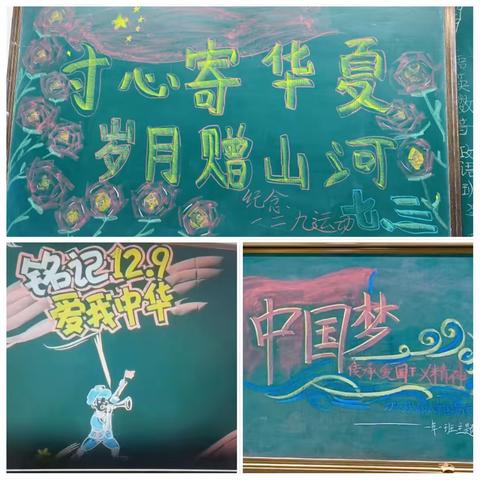 寸心寄华夏
岁月赠山河
纪念
一二·九运动
七、三
铭记12.9
爱我中华
中国梦
传承爱国主义精神